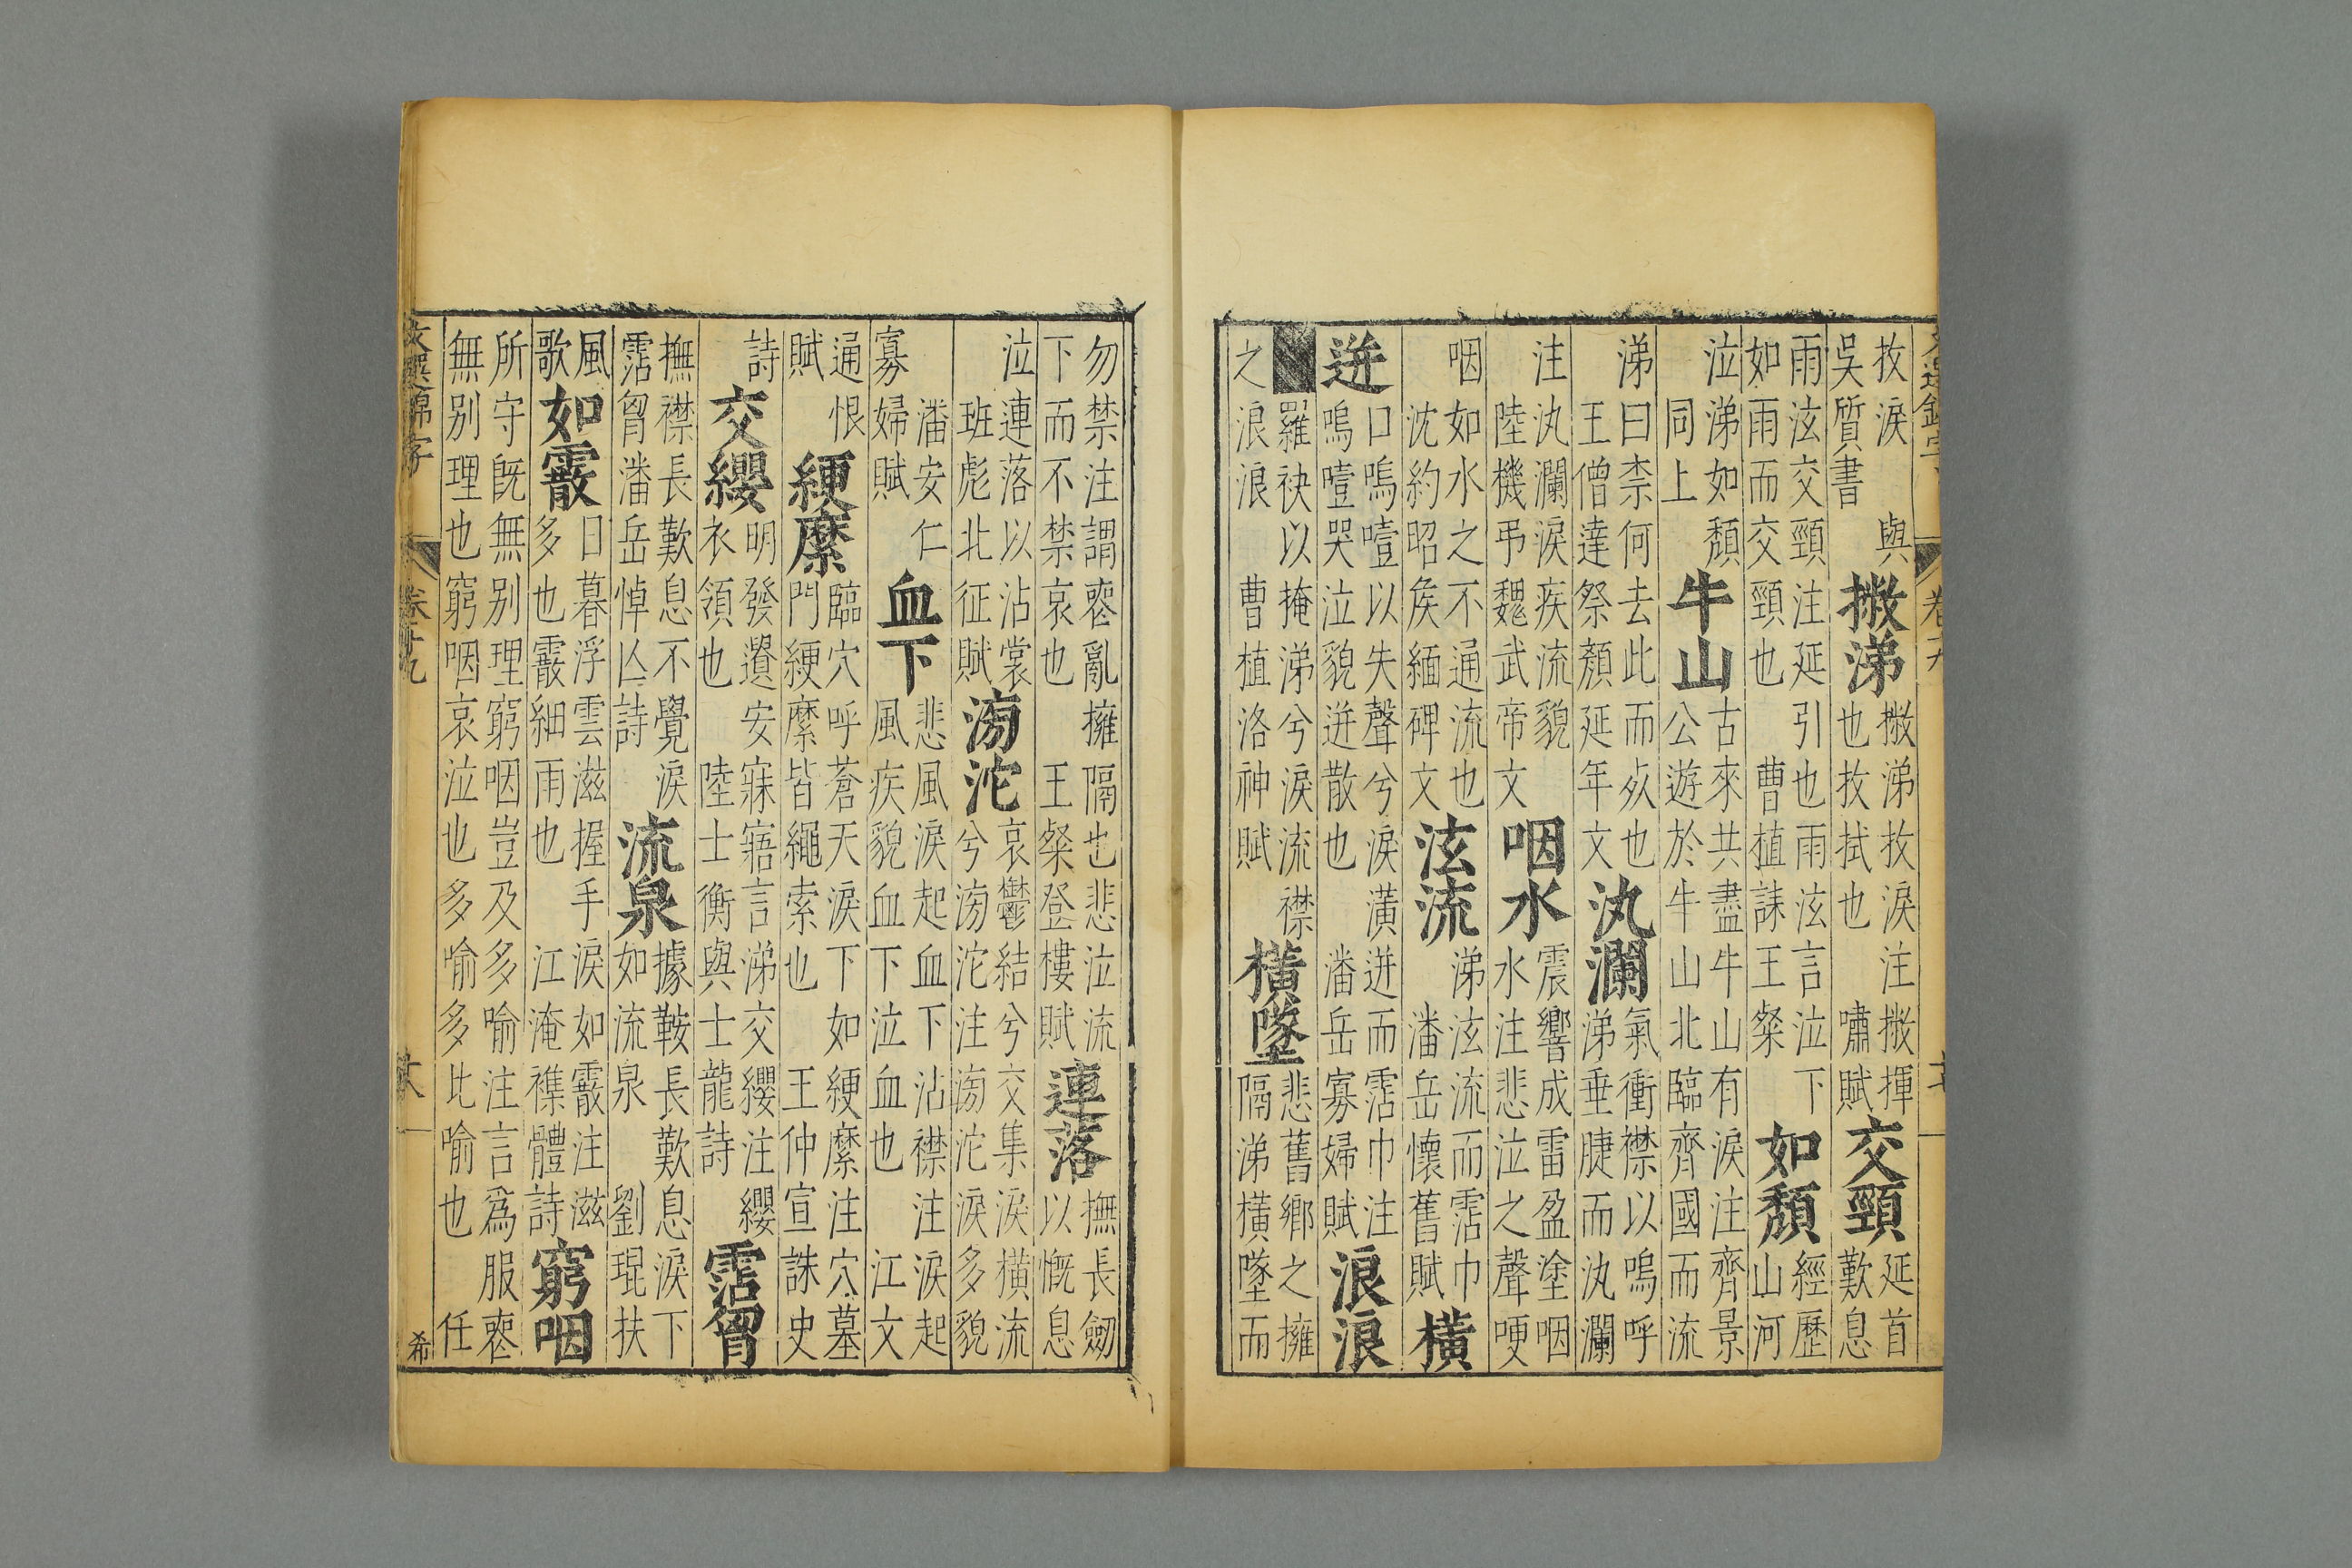 抆淚與
吳質書
撇涕
撇涕抆淚注撇揮
也抆拭也 嘯賦
交頸
延首
歎息
雨泫交頸注延引也雨泫言泣下
如雨而交頸也 曹植誄王粲
如頹
經歷
山河
泣涕如頹
同上
牛山
古來共盡牛山有淚注齊景
公遊於牛山北臨齊國而流
涕曰柰何去此而死也
王僧達祭顏延年文
汍瀾
氣衝襟以嗚呼
涕垂睫而汍瀾
注汍瀾淚疾流貌
陸機弔魏武帝文
咽水
震響成雷盈塗咽
水注悲泣之聲哽
咽如水之不通流也
沈約昭矦緬碑文
泫流
涕泫流而霑巾
潘岳懷舊賦
橫
迸
口嗚噎以失聲兮淚潢迸而霑巾注
嗚噎哭泣貌迸散也 潘岳寡婦賦
浪浪
羅袂以掩涕兮淚流襟
之浪浪 曹植洛神賦
橫墜
悲舊鄉之擁
隔涕橫墜而
勿禁注謂喪亂擁隔也悲泣流
下而不禁哀也 王粲登樓賦
連落
撫長劒
以慨息
泣連落以沾裳
班彪北征賦
滂沱
哀鬱結兮交集淚橫流
兮滂沱注滂沱淚多貌
潘安仁
寡婦賦
血下
悲風淚起血下沾襟注淚起
風疾貌血下泣血也 江文
通恨
賦
綆縻
臨穴呼蒼天淚下如綆縻注穴墓
門綆縻皆繩索也 王仲宣誄史
詩
交纓
明發遺安寐寤言涕交纓注纓
衣領也 陸士衡與士龍詩
霑胷
撫襟長歎息不覺淚
霑胷潘岳悼亾詩
流泉
據鞍長歎息淚下
如流泉 劉琨扶
風
歌
如霰
日暮浮雲滋握手淚如霰注滋
多也霰細雨也 江淹襍體詩
窮咽
所守旣無別理窮咽豈及多喻注言爲服喪
無別理也窮咽哀泣也多喻多比喻也 任
文選錦字 卷十九 十八
希